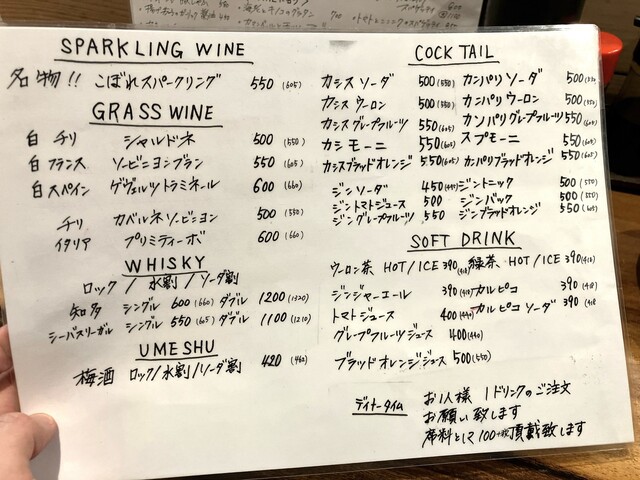 SPARKLING WINE
名物!! こぼれスパークリング 550 (605)
GRASS WINE
白 チリ シャルドネ 500 (550)
白 フランス ソービニヨンブラン 550 (605)
白 スペイン ゲヴェルツトラミネール 600 (660)
チリ カベルネソービニヨン 500 (550)
イタリア プリミティーボ 600 (660)
WHISKY
ロック / 水割 / ソーダ割
知多 シングル 600 (660) ダブル 1200 (1320)
シーバスリーガル シングル 550 (605) ダブル 1100 (1210)
UMESHU
梅酒 ロック/水割/ソーダ割 420 (462)
COCKTAIL
カシスソーダ 500 (550) カンパリソーダ 500
カシスウーロン 500 (550) カンパリウーロン 500 (550)
カシスグレープフルーツ 550 (605) カンパリグレープフルーツ 550 (605)
カシモーニ 550 (605) スプモーニ 550 (605)
カシスブラッドオレンジ 550 (605) カンパリブラッドオレンジ 550 (605)
ジンソーダ 450 ジントニック 500 (550)
ジントマトジュース 500 ジンバック 500 (550)
ジングレープフルーツ 550 ジンブラッドオレンジ 550 (605)
SOFT DRINK
ウーロン茶 HOT / ICE 390 緑茶 HOT / ICE 390
ジンジャーエール 390 カルピコ 390
トマトジュース 400 (440) カルピコソーダ 390
グレープフルーツジュース 400 (440)
ブラッドオレンジジュース 500 (550)
ディナータイム お1人様 1ドリンクのご注文
お願い致します
席料として100+税頂戴致します